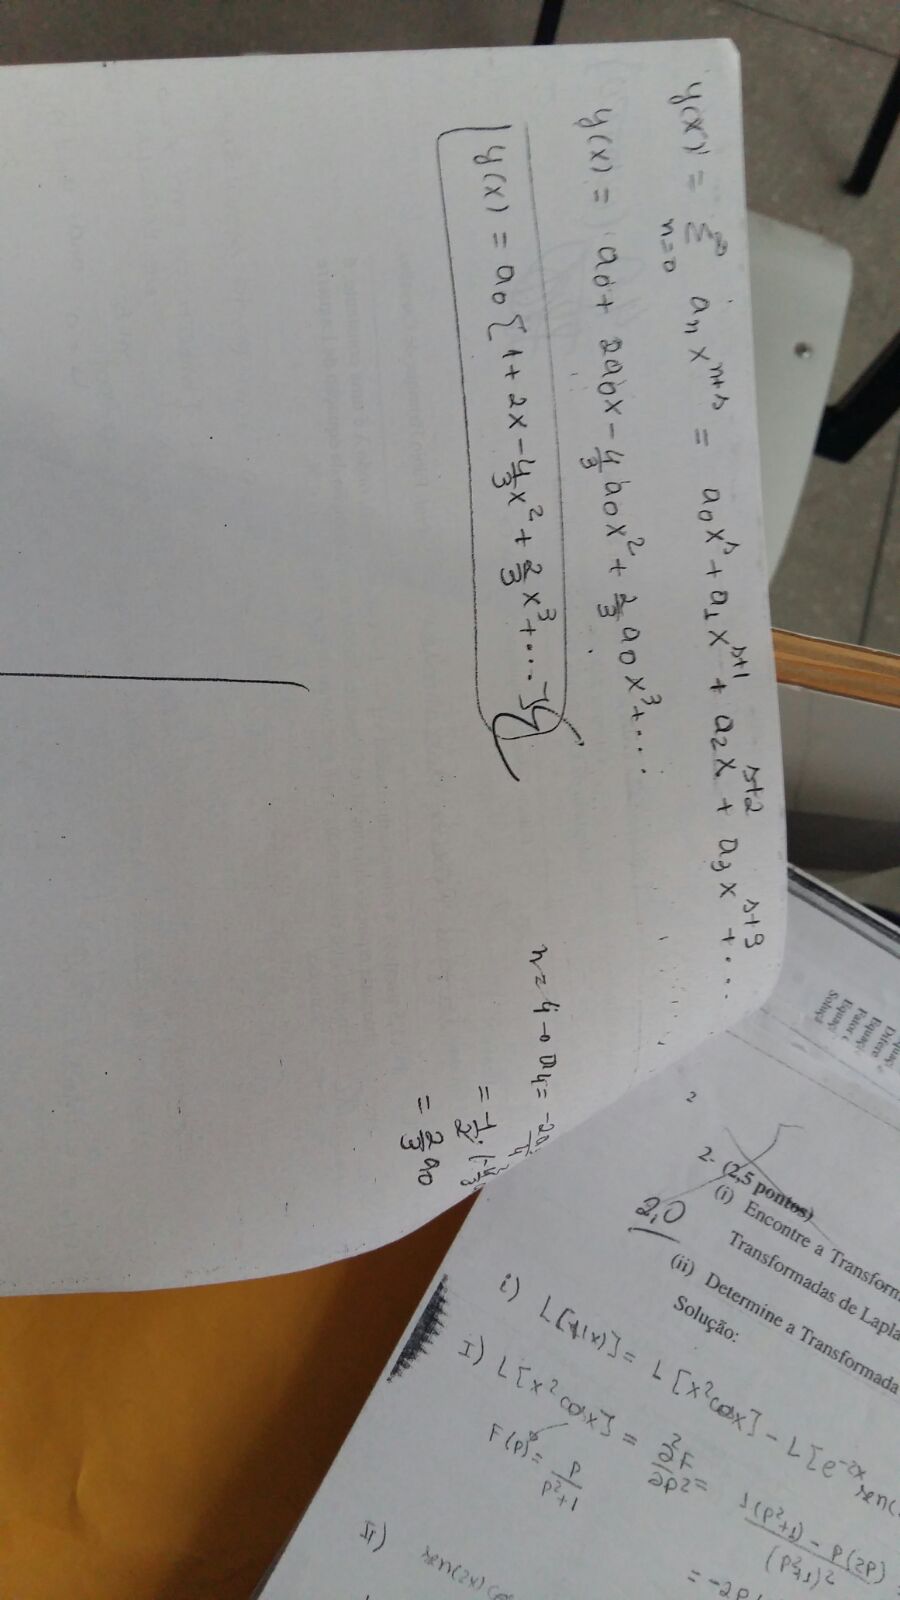 y(x) = Σ_{n=0}^{∞} a_n x^{n+s} = a_0 x^s + a_1 x^{s+1} + a_2 x^{s+2} + a_3 x^{s+3} + ...
y(x) = a_0 + 2a_0x - 4/3 a_0x^2 + 2/3 a_0x^3 + ...
y(x) = a_0 { 1 + 2x - 4/3 x^2 + 2/3 x^3 + ... }
n=4 → a_4 =
= 2/3 a_0
Solu
2
2- (2,5 pontos)
2,0
(i) Encontre a Transform
Transformadas de Lapla
(ii) Determine a Transformada
Solução:
i) L[ (x)] = L[x^2 cosx] - L[e^{-2x} sen(
I) L[x^2 cosx] = ∂^2F/∂p^2 = 1(p^2+1) - p(2p) / (p^2+1)^2
F(p) = p/p^2+1
= -2p
II) sen(2x) cos